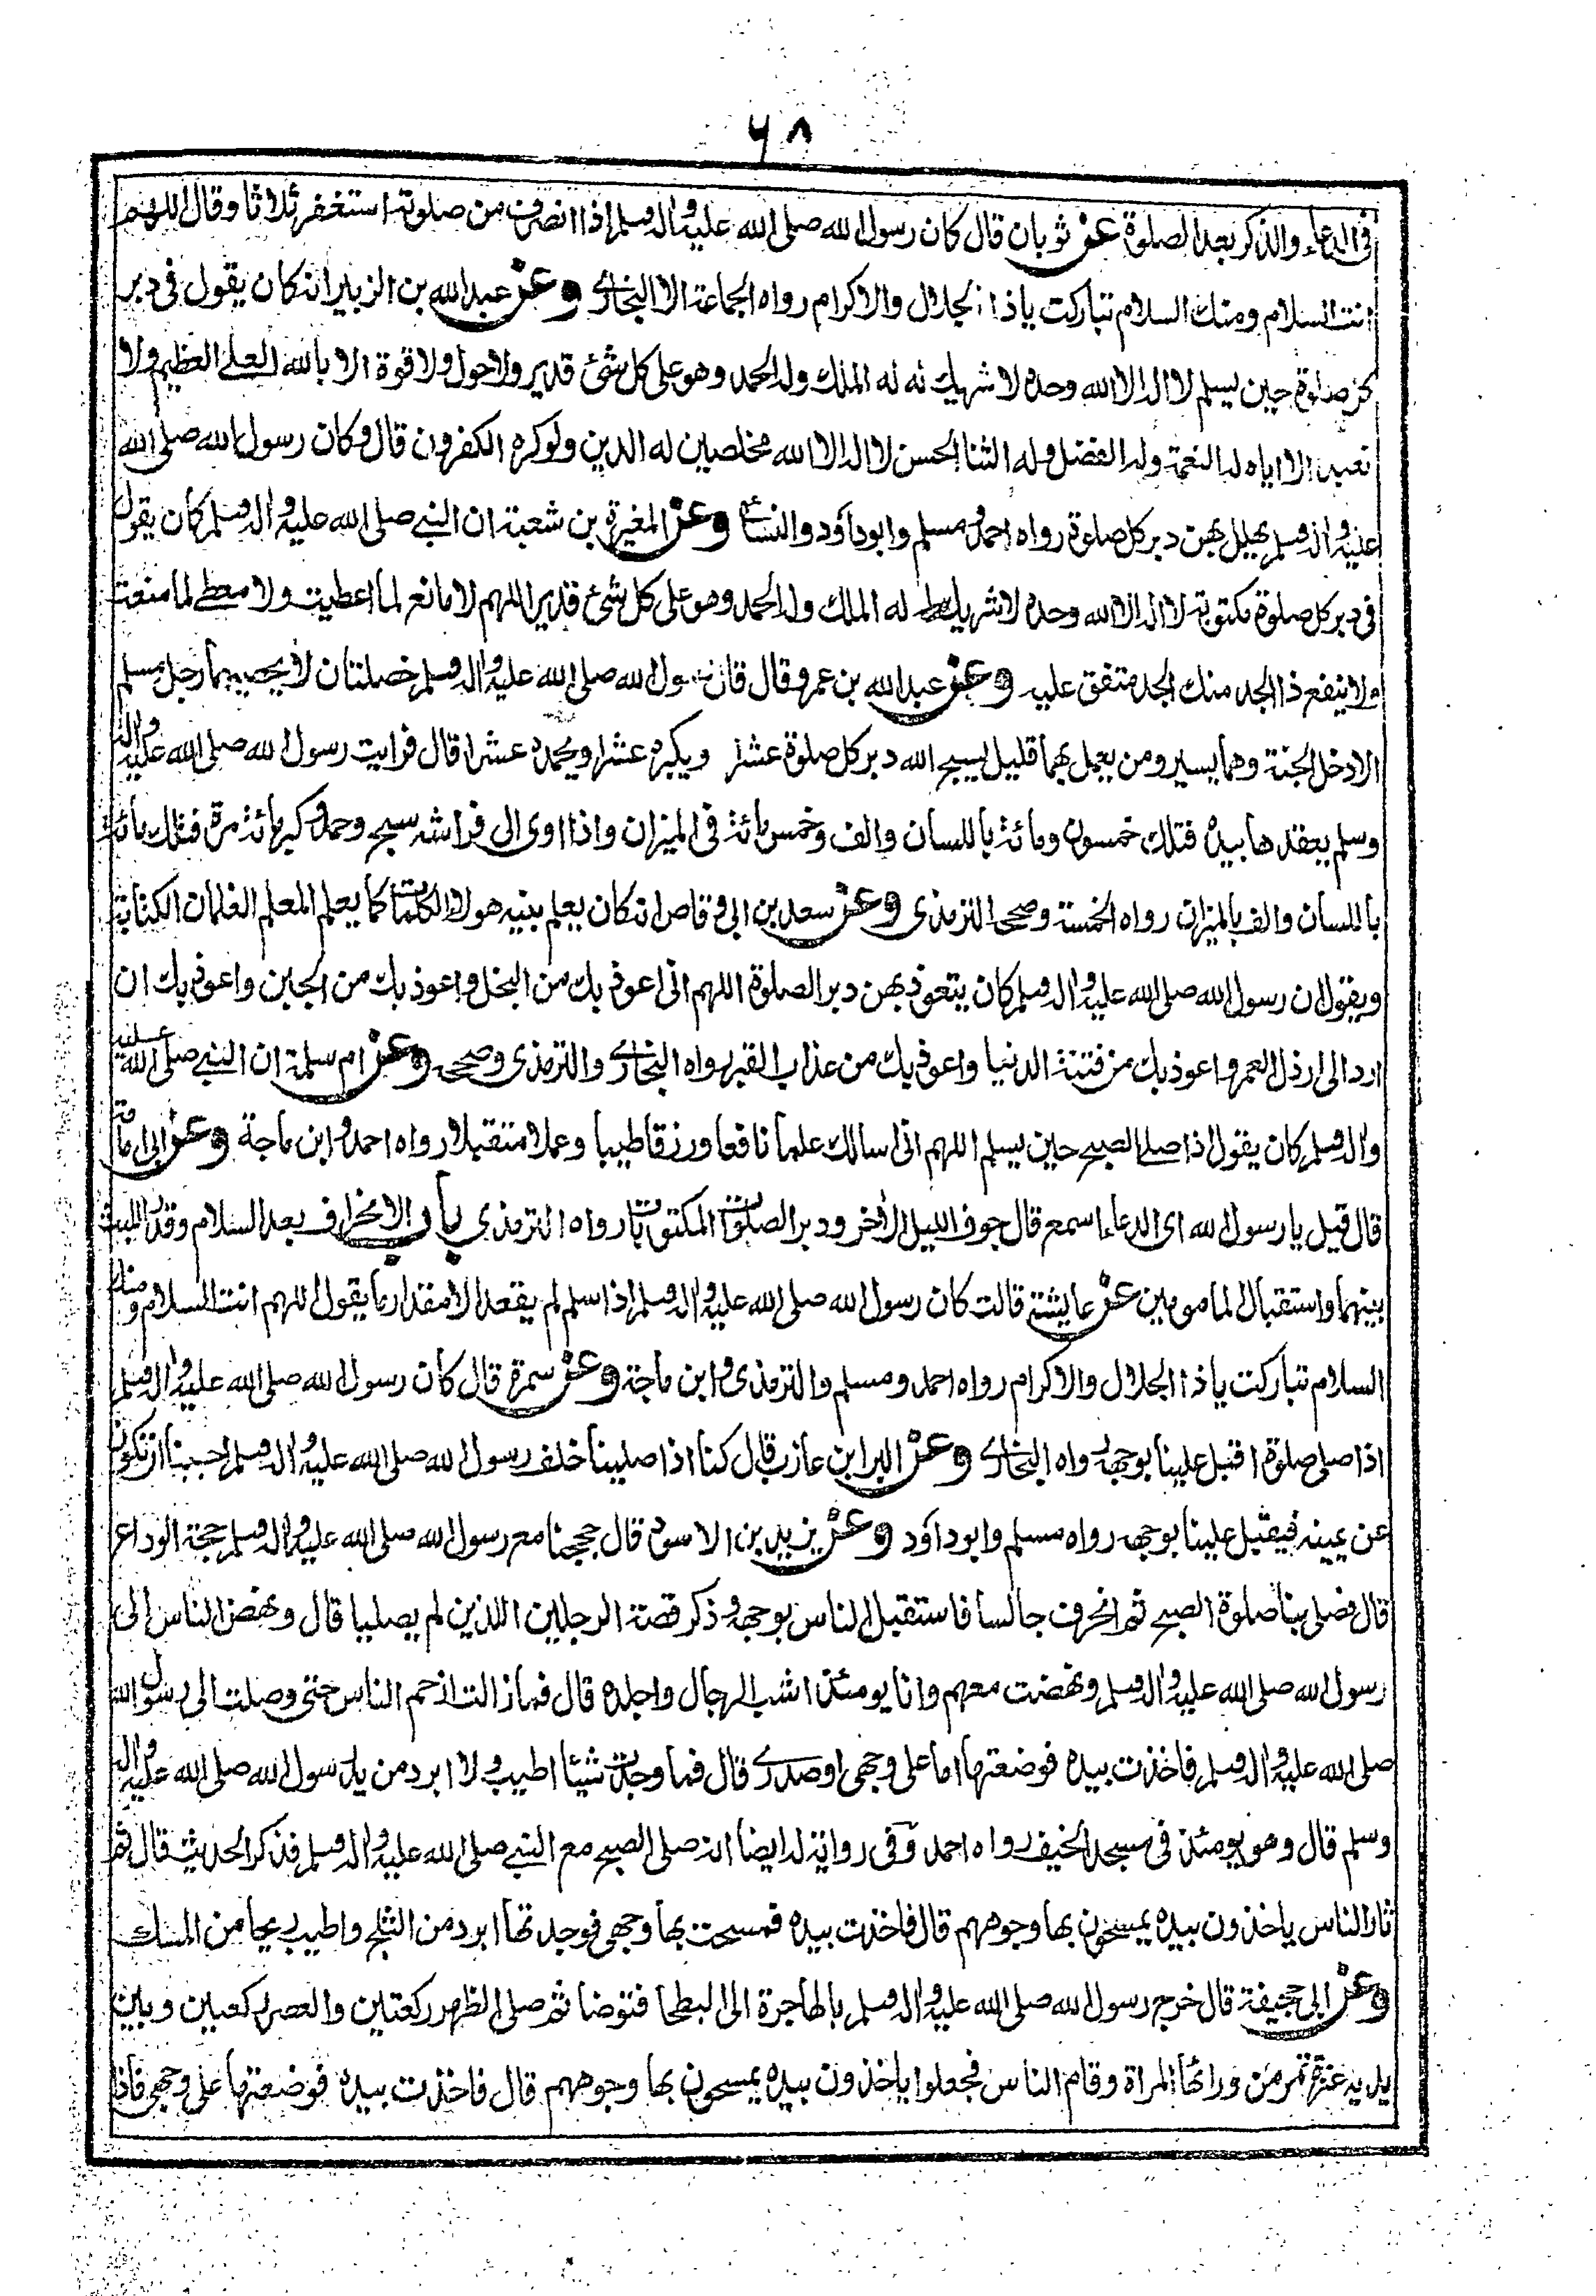 ۶۸
فى الدعاء والذكر بعد الصلوة عن ثوبان قال كان رسول الله صلى الله عليه واله وسلم اذا انصرف من صلوته استغفر ثلاثا وقال اللهم
انت السلام ومنك السلام تباركت ياذا الجلال والاكرام رواه الجماعة الا البخارى وعن عبدالله بن الزبير انه كان يقول فى دبر
كل صلوة حين يسلم لا اله الا الله وحده لا شريك له له الملك وله الحمد وهو على كل شئ قدير ولا حول ولا قوة الا بالله العلى العظيم ولا
نعبد الا اياه له النعمة وله الفضل وله الثنا الحسن لا اله الا الله مخلصين له الدين ولو كره الكفرون قال وكان رسول الله صلى الله
عليه واله وسلم يهلل بهن دبر كل صلوة رواه احمد ومسلم وابوداؤد والنسائى وعن المغيرة بن شعبة ان النبى صلى الله عليه واله وسلم كان يقول
فى دبر كل صلوة مكتوبة لا اله الا الله وحده لا شريك له الملك وله الحمد وهو على كل شئ قدير اللهم لا مانع لما اعطيت ولا معطى لما منعت
ولا ينفع ذا الجد منك الجد متفق عليه وعن عبدالله بن عمرو قال قال رسول الله صلى الله عليه واله وسلم خصلتان لا يحصيهما رجل مسلم
الا دخل الجنة وهما يسير ومن يعمل بهما قليل يسبح الله دبر كل صلوة عشرا ويكبره عشرا ويحمده عشرا قال فرايت رسول الله صلى الله عليه واله
وسلم يعقدها بيده فتلك خمسون ومائة باللسان والف وخمس مائة فى الميزان واذا اوى الى فراشه سبح وحمد وكبر مائة مرة فتلك مائة
باللسان والف بالميزان رواه الخمسة وصححه الترمذى وعن سعد بن ابى وقاص انه كان يعلم بنيه هولاء الكلمات كما يعلم المعلم الغلمان الكتابة
ويقول ان رسول الله صلى الله عليه واله وسلم كان يتعوذ بهن دبر الصلوة اللهم انى اعوذ بك من البخل واعوذ بك من الجبن واعوذ بك ان
ارد الى ارذل العمر واعوذ بك من فتنة الدنيا واعوذ بك من عذاب القبر رواه البخارى والترمذى وصححه وعن ام سلمة ان النبى صلى الله عليه
واله وسلم كان يقول اذا صلى الصبح حين يسلم اللهم انى اسالك علما نافعا ورزقا طيبا وعملا متقبلا رواه احمد وابن ماجة وعن ابى امامة
قال قيل يا رسول الله اى الدعاء اسمع قال جوف الليل الاخر ودبر الصلوات المكتوبات رواه الترمذى باب الانحراف بعد السلام وقدر اللبث
بينهما واستقبال المامومين عن عايشة قالت كان رسول الله صلى الله عليه واله وسلم اذا سلم لم يقعد الا مقدار ما يقول اللهم انت السلام ومنك
السلام تباركت ياذا الجلال والاكرام رواه احمد ومسلم والترمذى وابن ماجة وعن سمرة قال كان رسول الله صلى الله عليه واله وسلم
اذا صلى صلوة اقبل علينا بوجهه رواه البخارى وعن البرا بن عازب قال كنا اذا صلينا خلف رسول الله صلى الله عليه واله وسلم احببنا ان نكون
عن يمينه فيقبل علينا بوجهه رواه مسلم وابوداؤد وعن يزيد بن الاسود قال حججنا مع رسول الله صلى الله عليه واله وسلم حجة الوداع
قال فصلى بنا صلوة الصبح ثم انحرف جالسا فاستقبل الناس بوجهه وذكر قصة الرجلين اللذين لم يصليا قال ونهض الناس الى
رسول الله صلى الله عليه واله وسلم ونهضت معهم وانا يومئذ اشب الرجال واجلده قال فما زالت ازحم الناس حتى وصلت الى رسول الله
صلى الله عليه واله وسلم فاخذت بيده فوضعتها اما على وجهى او صدرى قال فما وجدت شيئا اطيب ولا ابرد من يد رسول الله صلى الله عليه واله
وسلم قال وهو يومئذ فى مسجد الخيف رواه احمد وفى رواية له ايضا انه صلى الصبح مع النبى صلى الله عليه واله وسلم فذكر الحديث قال ثم
ثار الناس ياخذون بيده يمسحون بها وجوههم قال فاخذت بيده فمسحت بها وجهى فوجدتها ابرد من الثلج واطيب ريحا من المسك
وعن ابى جحيفة قال خرج رسول الله صلى الله عليه واله وسلم بالهاجرة الى البطحا فتوضا ثم صلى الظهر ركعتين والعصر ركعتين وبين
يديه عنزة تمر من ورائها المراة وقام الناس فجعلوا ياخذون بيده يمسحون بها وجوههم قال فاخذت بيده فوضعتها على وجهى فاذا